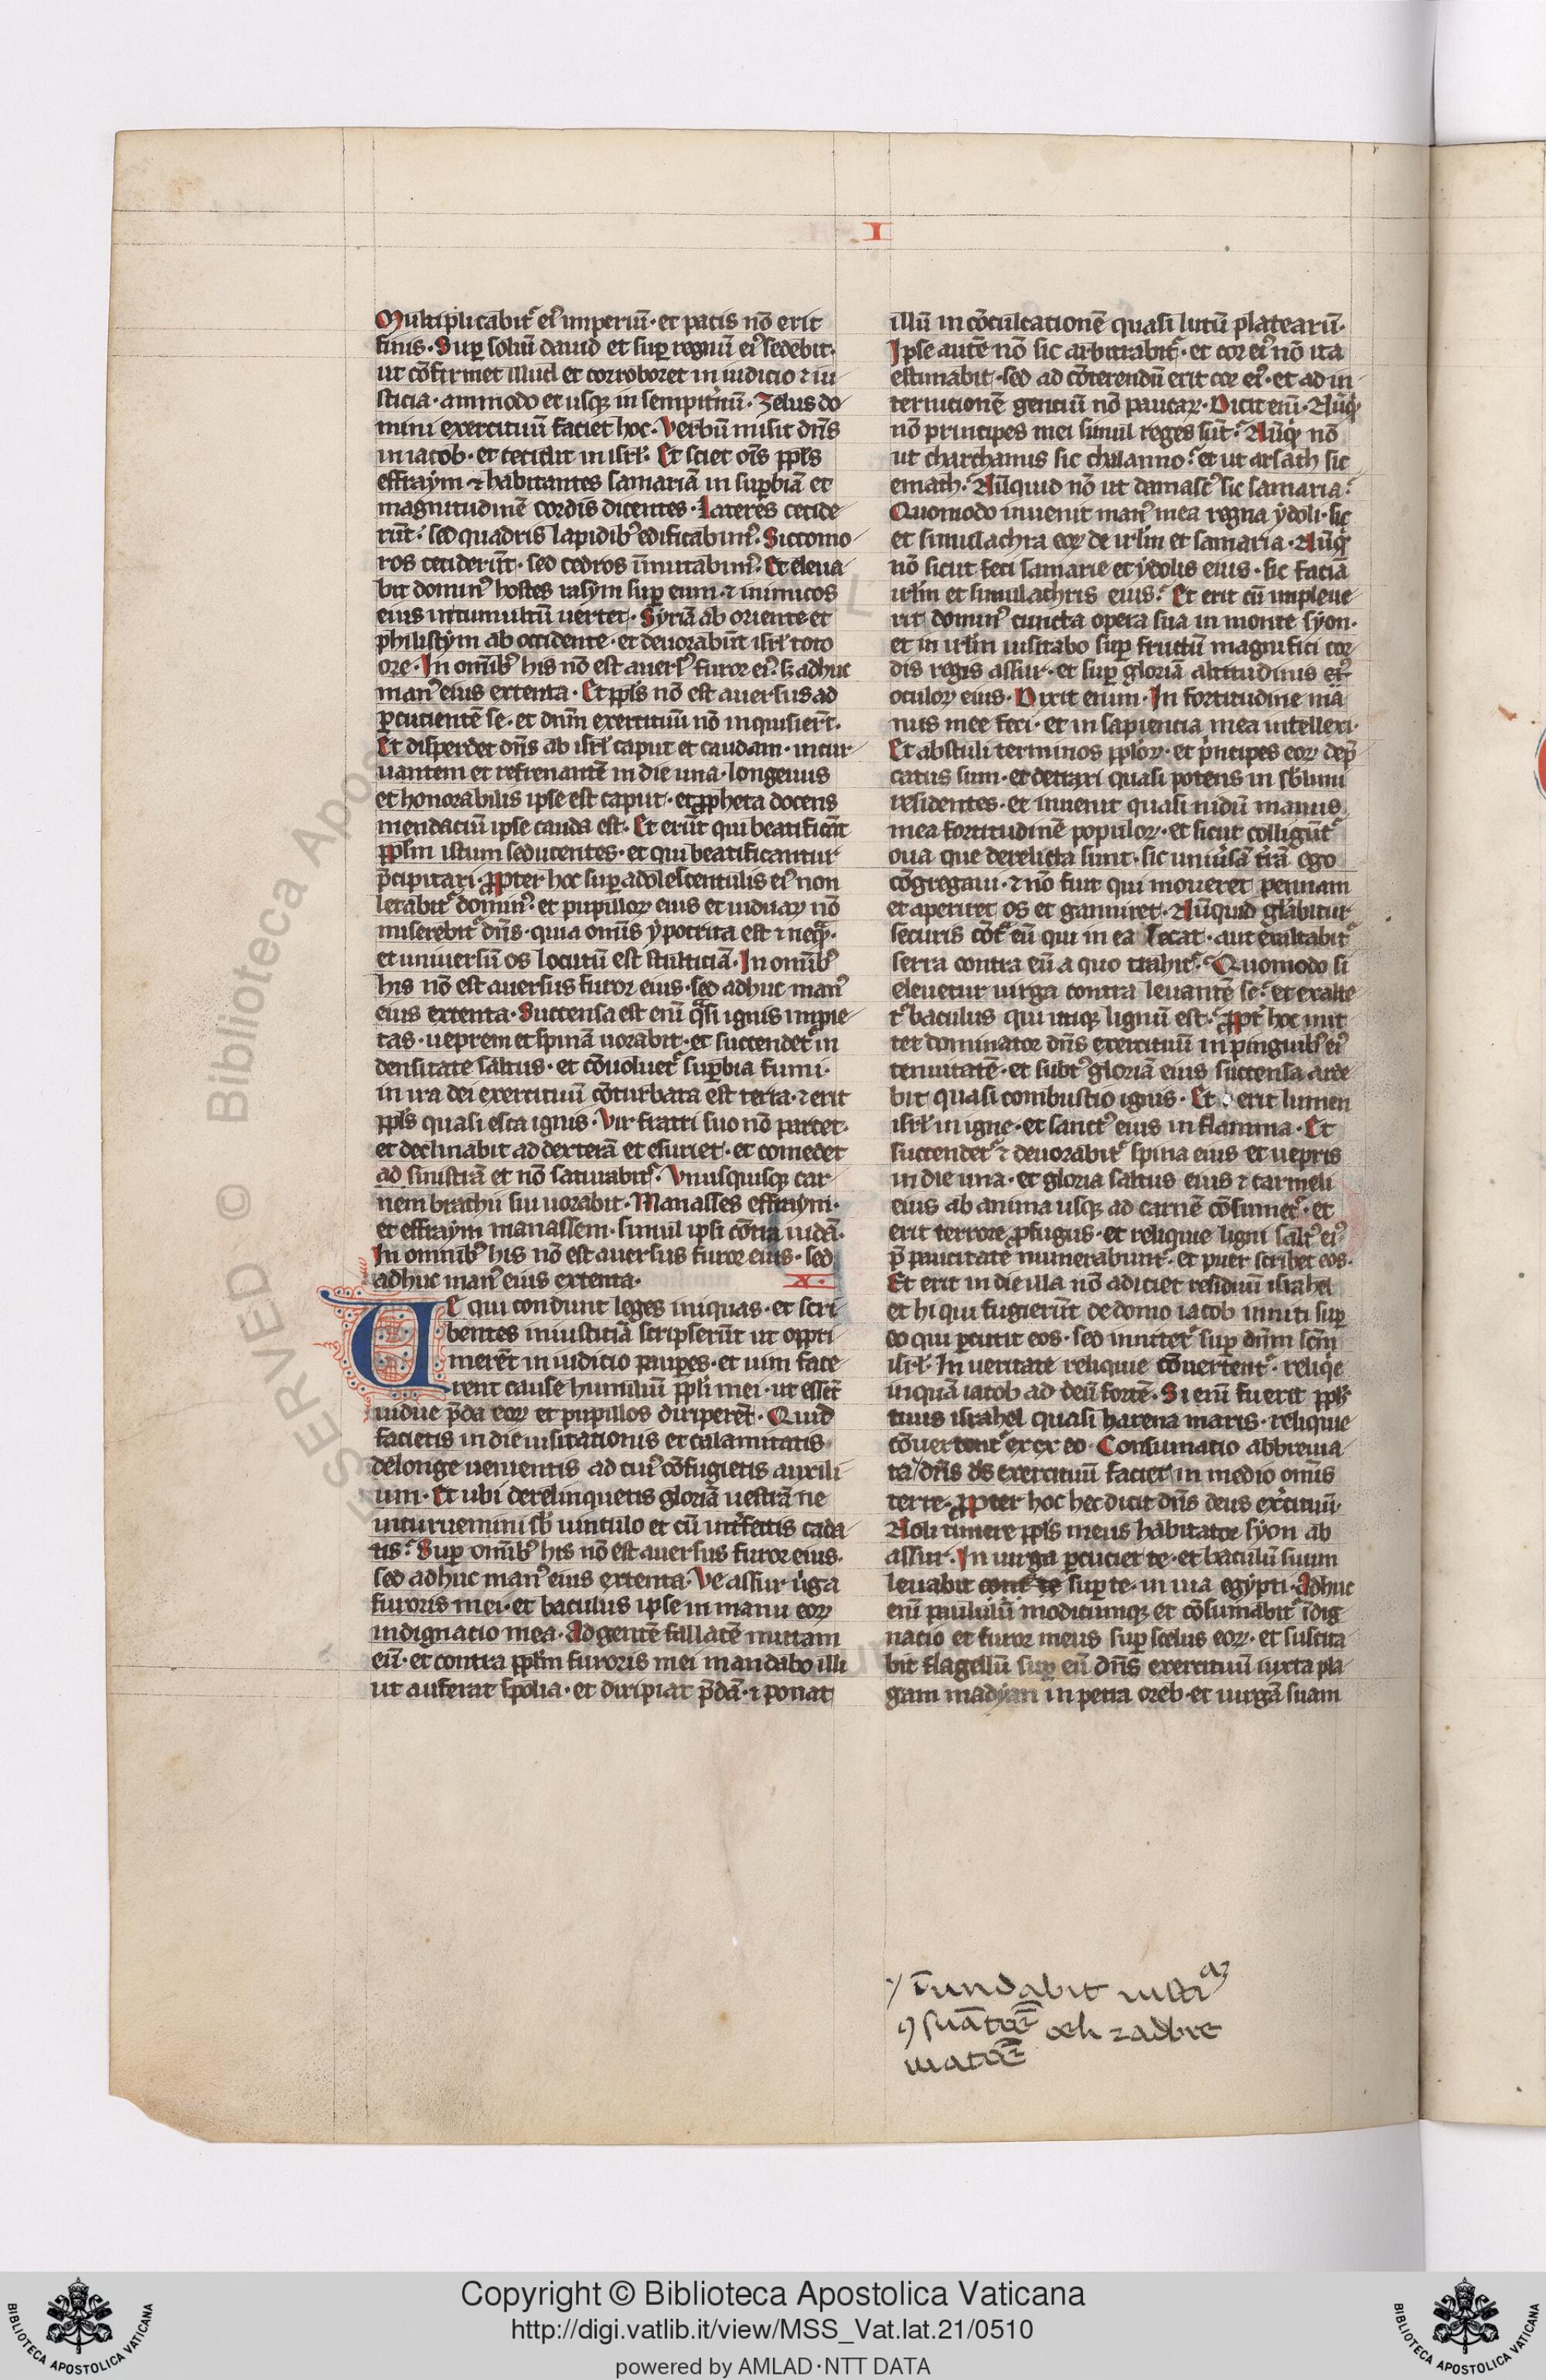 I
Multiplicabit᷒ ei᷒ imperiū· et pacis nō erit
finis· Sup̱ soliū dauid et sup̱ regnū ei᷒ sedebit·
ut cōfirmet illud et corroboret in iudicio ⁊ iu
sticia· ammodo et usq̨ in sempit̓nū· Zelus do
mini exercituū faciet hoc· Verbū misit dn̄s
in iacob· et cecidit in isrl̓· Et sciet oīs ppl̓s
effraym ⁊ habitantes samariā in sup̱biā et
magnitudinē cordis dicentes· Lateres cecide
rūt· sed quadris lapidib᷒ edificabim᷒· Siccomo
ros cecider̄t· sed cedros īmutabim᷒· Et eleua
bit domin᷒ hostes rasym sup̱ eum· ⁊ inimicos
eius in tumultū uertet· Syriā ab oriente et
philistym ab occidente· et deuorabūt isrl̓ toto
ore· In omīb᷒ his nō est auers᷒ furor ei᷒· s; adhuc
man᷒ eius extenta· Et ppl̓s nō est auersus ad
p̱cucientē se· et dn̄m exercituū nō inquisiert̄·
Et disperdet dn̄s ab isrl̓ caput et caudam· incur
uantem et refrenantē in die una· longeuus
et honorabilis ipse est caput· et ꝓpheta docens
mendaciū ipse cauda est· Et erūt qui beatificāt
ppl̓m istum seducentes· et qui beatificantur
p̄cipitati· Ꝓpter hoc sup̱ adolescentulis ei᷒ non
letabit᷒ domin᷒· et pupilloꝝ eius et uiduaꝝ nō
miserebit᷒ dn̄s· quia omīs ypocrita est ⁊ neq̄ᷓ·
et uniuersū os locutū est stulticiā· In omīb᷒
his nō est auersus furor eius· sed adhuc man᷒
eius extenta· Succensa est enī qᷓsi ignis impie
tas· ueprem et spinā uorabit· et succendet᷒ in
densitate saltus· et cōuoluet᷒ sup̱bia fumi·
in ira dei exercituū cōturbata est terra· ⁊ erit
ppl̓s quasi esca ignis· Vir fratri suo nō parcet·
et declinabit ad dexterā et esuriet· et comedet
ad sinistrā et nō saturabit᷒· Vnusquisq̨ car
nem brachii sui uorabit· Manasses effraym·
et effraym manassem· simul ipsi cōtra iudā·
In omnib᷒ his nō est auersus furor eius· sed
adhuc man᷒ eius extenta· X·
Ue qui condunt leges iniquas· et scri
bentes iniusticiā scripserūt ut oppri
merēt in iudicio paup̱es· et uim face
rent cause humiliū ppl̓i mei· ut essēt
uidue p̄da eoꝝ et pupillos diriperēt· Quid
facietis in die uisitationis et calamitatis
delonge uenientis ad cui᷒ cōfugietis auxili
um· Et ubi derelinquetis gloriā uestrā ne
incuruemini sb̓ uinculo et cū int̓fectis cada
tis· Sup̱ omīb᷒ his nō est auersus furor eius·
sed adhuc man᷒ eius extenta· Ve assur u̓ga
furoris mei· et baculus ipse in manu eoꝝ
indignatio mea· Ad gentē fallacē mittam
eū· et contra ppl̓m furoris mei mandabo illi
ut auferat spolia· et diripiat p̄dā· ⁊ ponat
illū in cōculcationē quasi lutū platearū·
Ipse autē nō sic arbitrabit᷒· et cor ei᷒ nō ita
estimabit· sed ad cōterendū erit cor ei᷒· et ad in
ternicionē genciū nō paucaꝝ· Dicit enī· Nūq̓d
nō principes mei simul reges sūt· Nūq̓d nō
ut charchamis sic chalanno· et ut arfath sic
emath· Nūquid nō ut damasc᷒ sic samaria·
Quomodo inuenit man᷒ mea regna ydoli· sic
et simulachra eoꝝ de irl̓m et samaria· Nūq̓d
nō sicut feci samarie et ydolis eius· sic faciā
irl̓m et simulachris eius· Et erit cū impleue
rit domin᷒ cuncta opera sua in monte syon·
et in irl̓m uisitabo sup̱ fructū magnifici cor
dis regis assur· et sup̱ gloriā altitudinis
oculoꝝ eius· Dixit enim· In fortitudine ma
nus mee feci· et in sapiencia mea intellexi·
Et abstuli terminos ppl̓oꝝ· et p̓ncipes eoꝝ dep̄
catus sum· et detraxi quasi potens in sb̓limi
residentes· et inuenit quasi nidū manus
mea fortitudinē populoꝝ· et sicut colligūt᷒
oua que derelicta sunt· sic uniu̓sā t̓rā ego
cōgregaui· ⁊ nō fuit qui moueret pennam
et aperiret os et ganniret· Nūquid gl̓abitur
securis cōt᷒ eū qui in ea secat· aut exaltabit᷒
serra contra eū a quo trahit᷒· Quomodo si
eleuetur uirga contra leuantē se· et exalte
t᷒ baculus qui utiq̨ lignū est· Ꝓpt̓ hoc mit
tet dominator dn̄s exercituū in pinguib᷒ ei᷒
tenuitatē· et subt᷒ gloriā eius succensa arde
bit quasi combustio ignis· Et erit lumen
isrl̓ in igne· et sanct᷒ eius in flamma· Et
succendet᷒ ⁊ deuorabit᷒ spina eius et uepris
in die una· et gloria saltus eius ⁊ carmeli
eius ab anima usq̨ ad carnē cōsumet᷒· et
erit terrore ꝓfugus· et reliquie ligni salt᷒ ei᷒
p̄ paucitate numerabunt᷒· et puer scribet eos·
Et erit in die illa nō adiciet residuū israhel
et hi qui fugierūt de domo iacob inniti sup̱
eo qui p̱cutit eos· sed innitet᷒ sup̱ dn̄m scm̄
isrl̓· In ueritate reliquie cōuertent᷒· reliq̓e
inquā iacob ad deū fortē· Si enī fuerit ppl̓s
tuus israhel quasi harena maris· reliquie
cōuertent᷒ ex eo· Consumatio abbreuia
ta/ dn̄s ds̄ exercituū faciet in medio omīs
terre· Ꝓpter hoc hec dicit dn̄s deus ex̓cituū·
Noli timere ppl̓s meus habitator syon ab
assur· In uirga p̱cuciet te· et baculū suum
leuabit cont̓ te sup̱ te· in uia egypti· Adhuc
enī paululū modicumq̨ et cōsumabit᷒ īdig
nacio et furor meus sup̱ scelus eoꝝ· et suscita
bit flagellū sup̱ eū dn̄s exercituū iuxta pla
gam madyan in petra oreb· et uirgā suam
/ īundabit iusti
ꝯsūatōe eni ⁊ adbre
uiatōe
Copyright © Biblioteca Apostolica Vaticana
http://digi.vatlib.it/view/MSS_Vat.lat.21/0510
powered by AMLAD·NTT DATA
BIBLIOTECA APOSTOLICA VATICANA
BIBLIOTECA APOSTOLICA VATICANA